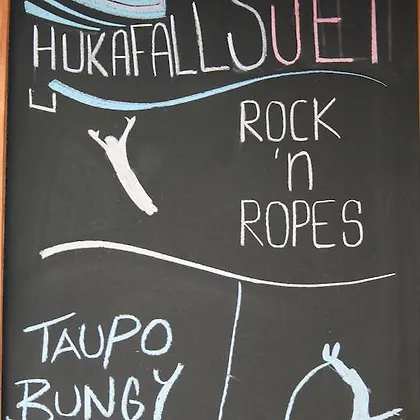 HUKAFALLSJET
ROCK
'n
ROPES
TAUPO
BUNGY